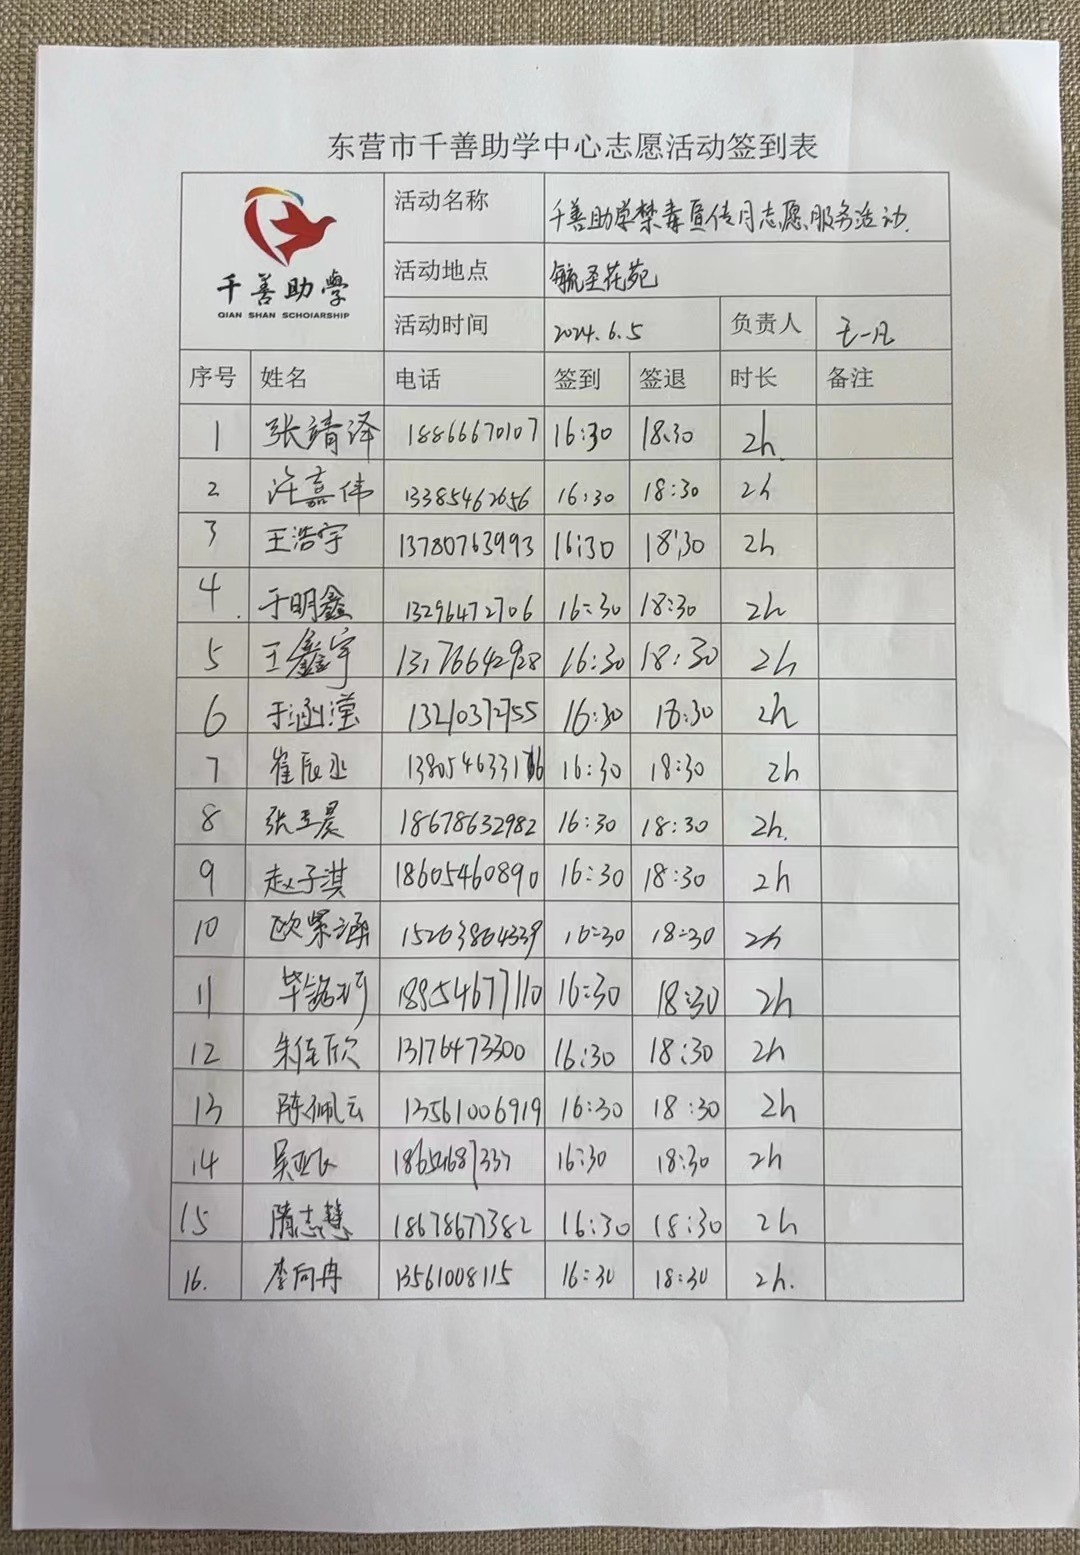 东营市千善助学中心志愿活动签到表
千善助學
QIAN SHAN SCHOlARSHIP
活动名称 千善助学禁毒宣传月志愿服务活动.
活动地点 毓圣花苑
活动时间 2024.6.5 负责人 王一凡
序号 姓名 电话 签到 签退 时长 备注
1 张靖译 18866670107 16:30 18:30 2h.
2 许嘉伟 13385462656 16:30 18:30 2h
3 王浩宇 13780763993 16:30 18:30 2h
4. 于明鑫 13296472706 16:30 18:30 2h
5 王鑫宇 13176642928 16:30 18:30 2h
6 于涵滢 13210372755 16:30 18:30 2h
7 崔辰丞 16:30 18:30 2h
8 张玉晨 18678632982 16:30 18:30 2h.
9 赵子淇 18605460890 16:30 18:30 2h
10 欧紫涵 15263864339 16:30 18:30 2h
11 毕铭珂 18954677110 16:30 18:30 2h
12 朱佳欣 13176473300 16:30 18:30 2h
13 陈佩云 13561006919 16:30 18:30 2h
14 16:30 18:30 2h
15 隋志慧 18678677382 16:30 18:30 2h
16. 李向冉 13561008115 16:30 18:30 2h.